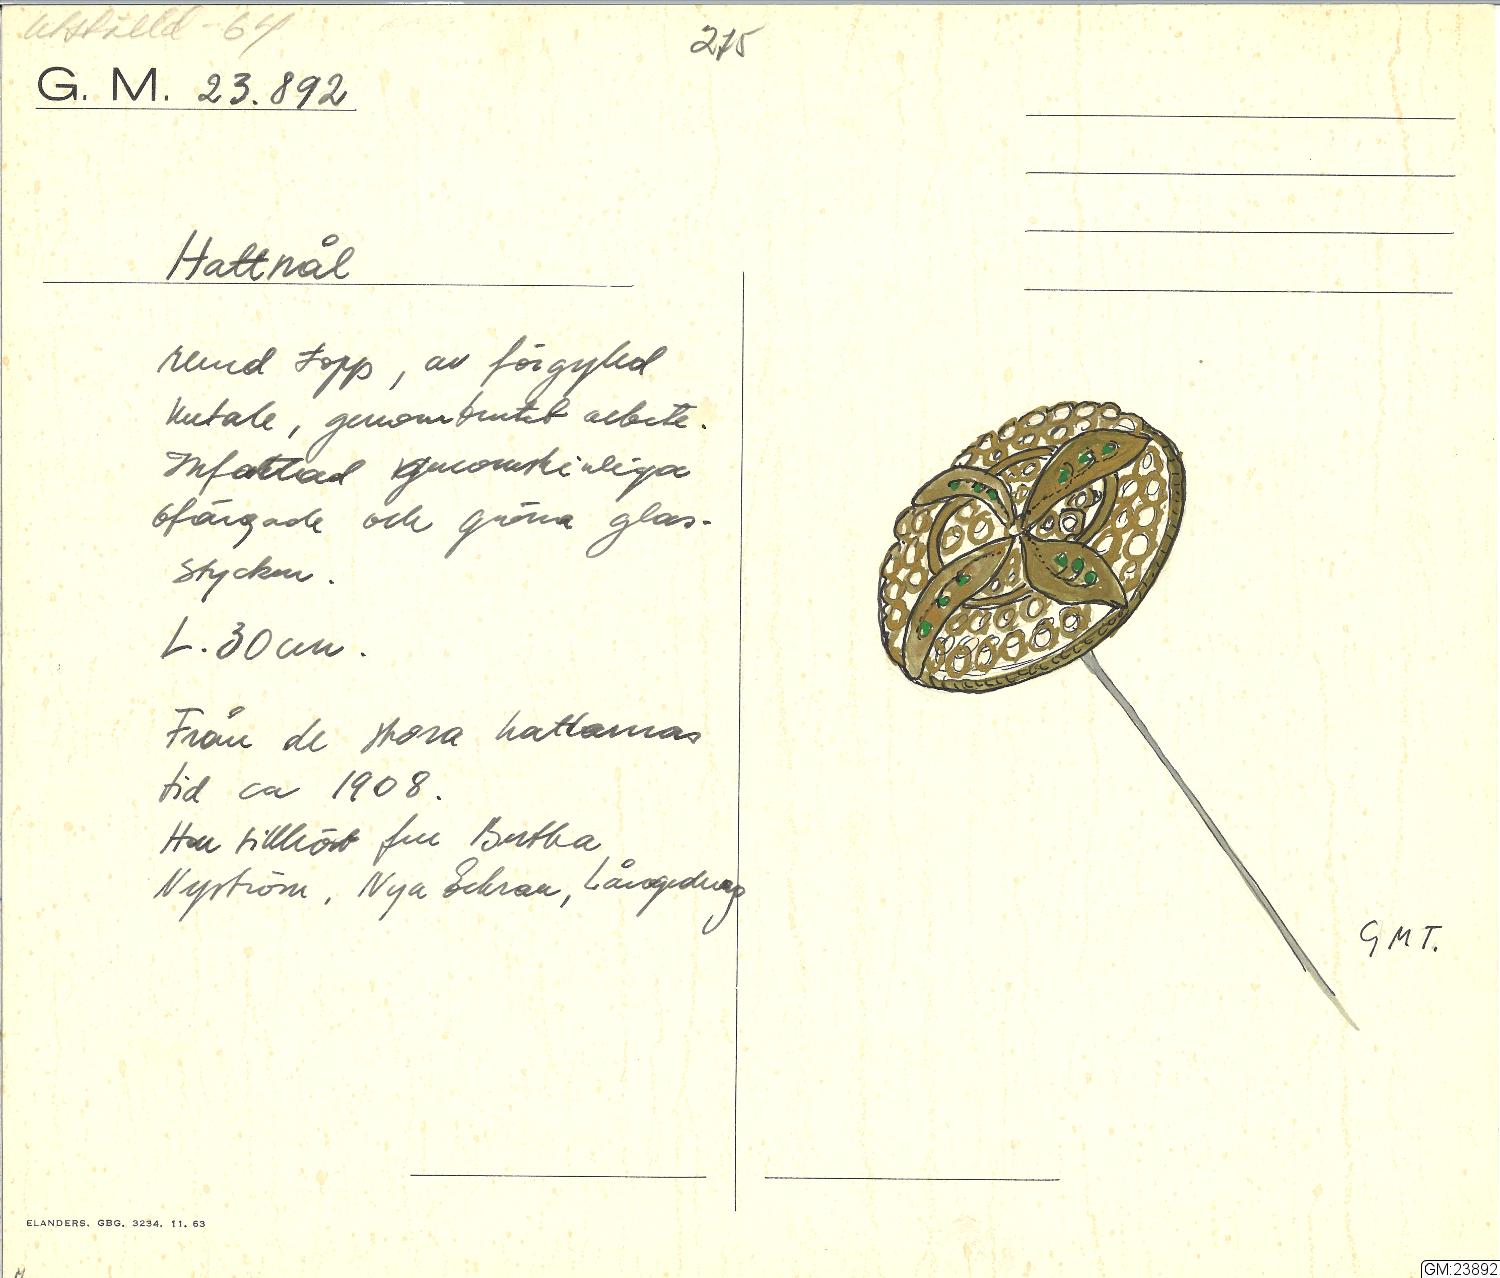 Utställd - 64
275
G. M. 23.892
Hattnål
rund topp, av förgylld
metall, genombrutet arbete.
Infattad genomskinliga
ofärgade och gröna glas-
stycken.
L. 30 cm.
Från de stora hattarnas
tid ca 1908.
Har tillhört fru Bertha
Nyström, Nya Ekbran, Långedrag
GMT.
ELANDERS. GBG. 3234. 11. 63
M
GM:23892